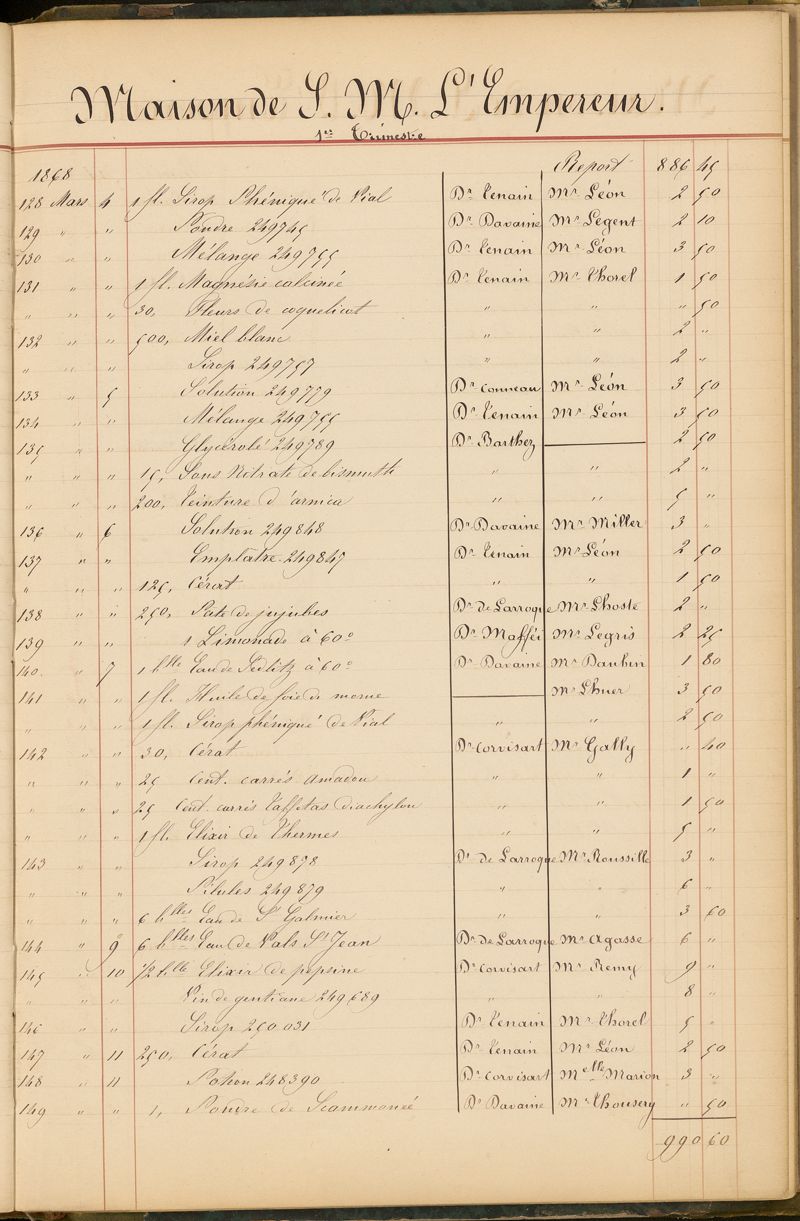 Maison de S. M. L'Empereur.
1er Trimestre
1868 Report 886 45
128 Mars 4 1 fl. Sirop Phéniqué de Vial Dr Tenain Mr Léon 2 50
129 " " Poudre 249745 Dr Davaine Mr Legent 2 10
130 " " Mélange 249755 Dr Tenain Mr Léon 3 50
131 " " 1 fl. Magnésie calcinée Dr Tenain Mr Thorel 1 50
" " " 30, Fleurs de coquelicot " " " 50
132 " " 500, Miel blanc " " 2 "
" " " Sirop 249757 " " 2 "
133 " 5 Solution 249779 Dr Conneau Mr Léon 3 50
134 " " Mélange 249755 Dr Tenain Mr Léon 3 50
135 " " Glycérolé 249789 Dr Barthez 2 50
" " " 15, Sous Nitrate de bismuth " " 2 "
" " " 200, Teinture d'arnica " " 5 "
136 " 6 Solution 249848 Dr Davaine Mr Miller 3 "
137 " " Emplâtre 249847 Dr Tenain Mr Léon 2 50
" " " 125, Cérat " " 1 50
138 " " 250, Pate de jujubes Dr de Larroque Mr Lhoste 2 "
139 " " 1 Limonade à 60° Dr Mafféi Mr Legris 2 25
140 " 7 1 blle Eau de Sedlitz à 60° Dr Davaine Mr Dauhin 1 80
141 " " 1 fl. Huile de foie de morue Mr Lhuer 3 50
" " " 1 fl. Sirop phéniqué de Vial " " 2 50
142 " " 30, Cérat Dr Corvisart Mr Gally " 40
" " " 25 Cent. carrés amadou " " 1 "
" " " 25 Cent. carrés Taffetas diachylon " " 1 50
" " " 1 fl. Elixir de Thermes " " 5 "
143 " " Sirop 249878 Dr de Larroque Mr Roussille 3 "
" " " Pilules 249879 " " 6 "
" " " 6 blles Eau de St Galmier " " 3 60
144 " 9 6 blles Eau de Vals St Jean Dr de Larroque Mr Agasse 6 "
145 " 10 1/2 blle Elixir de pepsine Dr Corvisart Mr Remy 9 "
" " " Vin de gentiane 249689 " " 8 "
146 " " Sirop 250.031 Dr Tenain Mr Thorel 5 "
147 " 11 250, Cérat Dr Tenain Mr Léon 2 50
148 " 11 Potion 248390 Dr Corvisart Melle Marion 3 "
149 " " 1, Poudre de Scammonée Dr Davaine Mr Thousery " 50
990 60